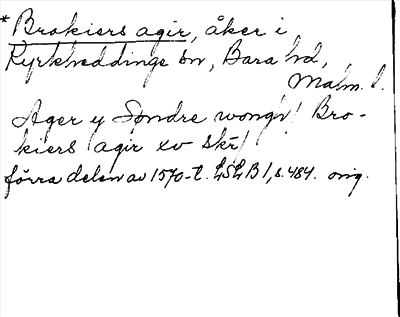 * Brokiers agir, åker i
Kyrkheddinge sn, Bara hd,
Malm. l.
Ager y Søndre wongn! Bro-
kiers agir xv skr!
förra delen av 1570-t. LSLB 1, s. 484. orig.